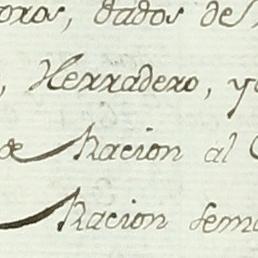 oros, dados de
, Herradero, y
de Racion al
Racion sema